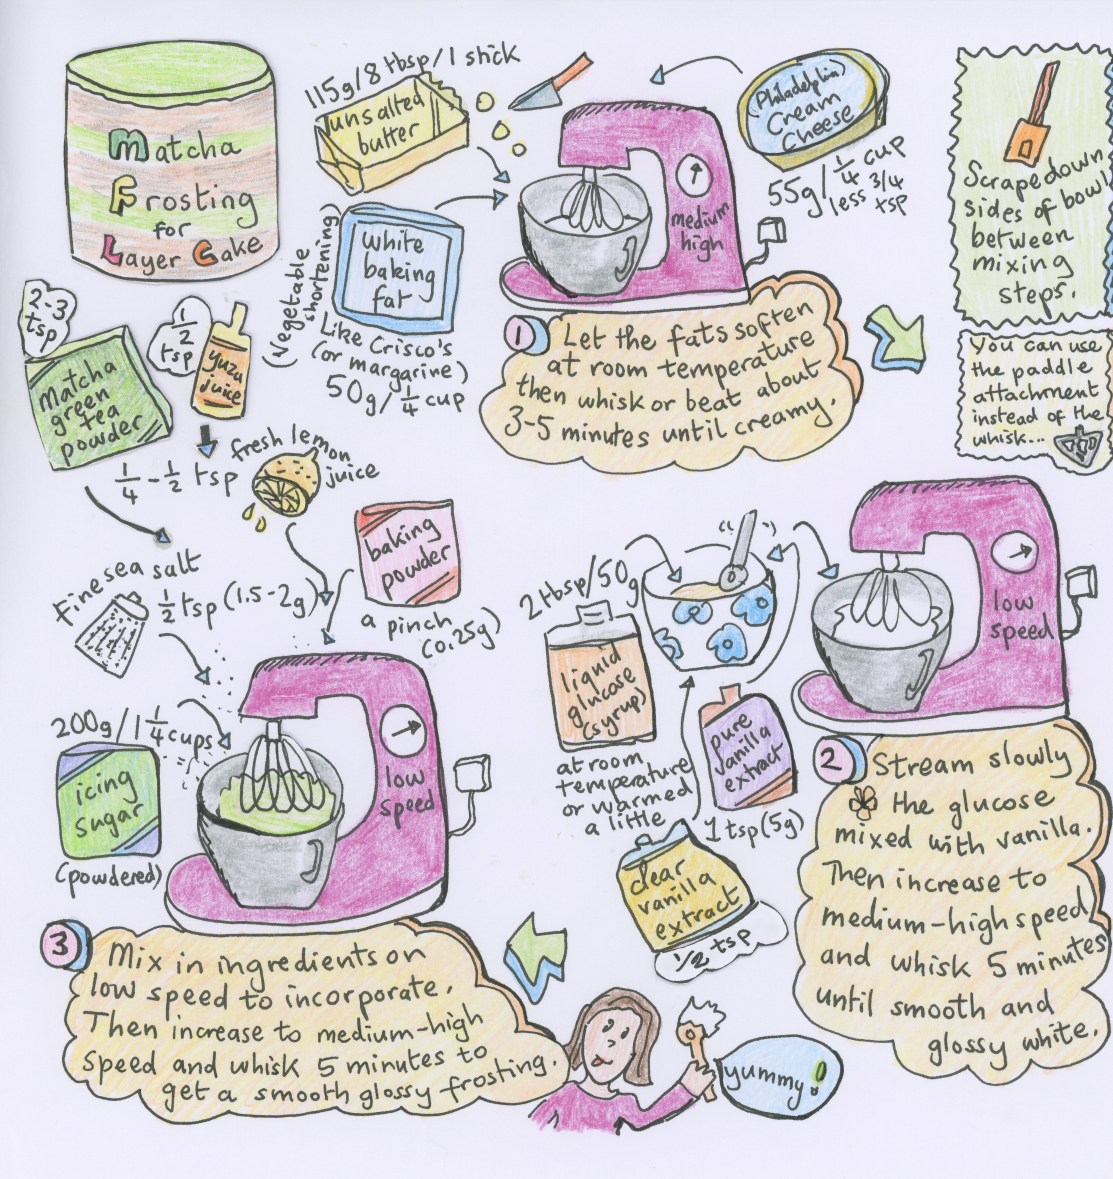 Matcha
Frosting
for
Layer Cake
115g/8 tbsp/1 stick
unsalted
butter
(Philadelphia)
Cream
Cheese
55g/1/4 cup
less 3/4
tsp
white
baking
fat
(Vegetable
shortening)
Like Crisco's
(or margarine)
50g/1/4 cup
medium
high
1 Let the fats soften
at room temperature
then whisk or beat about
3-5 minutes until creamy.
Scrape down
sides of bowl
between
mixing
steps.
You can use
the paddle
attachment
instead of the
whisk...
2-3
tsp
Matcha
green
tea
powder
1/2
tsp
yuzu
juice
1/4 - 1/2 tsp
fresh lemon
juice
baking
powder
a pinch
(0.25g)
Fine sea salt
1/2 tsp (1.5-2g)
200g/1 1/4 cups
icing
sugar
(powdered)
low
speed
2 tbsp/50g
liquid
glucose
(syrup)
at room
temperature
or warmed
a little
pure
vanilla
extract
1 tsp (5g)
clear
vanilla
extract
1/2 tsp
low
speed
2 Stream slowly
the glucose
mixed with vanilla.
Then increase to
medium-high speed
and whisk 5 minutes
until smooth and
glossy white.
3 Mix in ingredients on
low speed to incorporate.
Then increase to medium-high
speed and whisk 5 minutes to
get a smooth glossy frosting.
yummy!